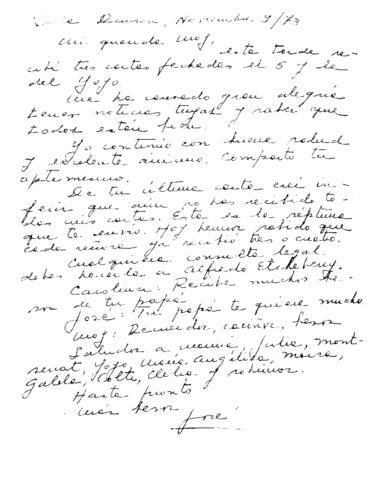 Isla Dawson, Noviembre 9/73
Mi querida Moy,
esta tarde re-
cibí tus cartas fechadas el 5 y la
del Yoyo.
Me ha causado gran alegría
tener noticias tuyas y saber que
todos están bien.
Yo continúo con buena salud
y excelente ánimo. Comparto tu
optimismo.
De tu última carta creí in-
ferir que aún no has recibido to-
das mis cartas. Esta es la séptima
que te envío. Hoy hemos sabido que
cada señora ya recibió tres o cuatro.
Cualquiera consulta legal
debes hacerla a Alfredo Etcheberry.
Carolina: Recibe muchos be-
sos de tu papá
José: Tu papá te quiere mucho
Moy: Recuerdos, cariños, besos
Saludos a mamá, Julia, Mont-
serrat, Yoyo, María Angélica, Moira,
Clelia y sobrinos.
Hasta pronto
más besos
José